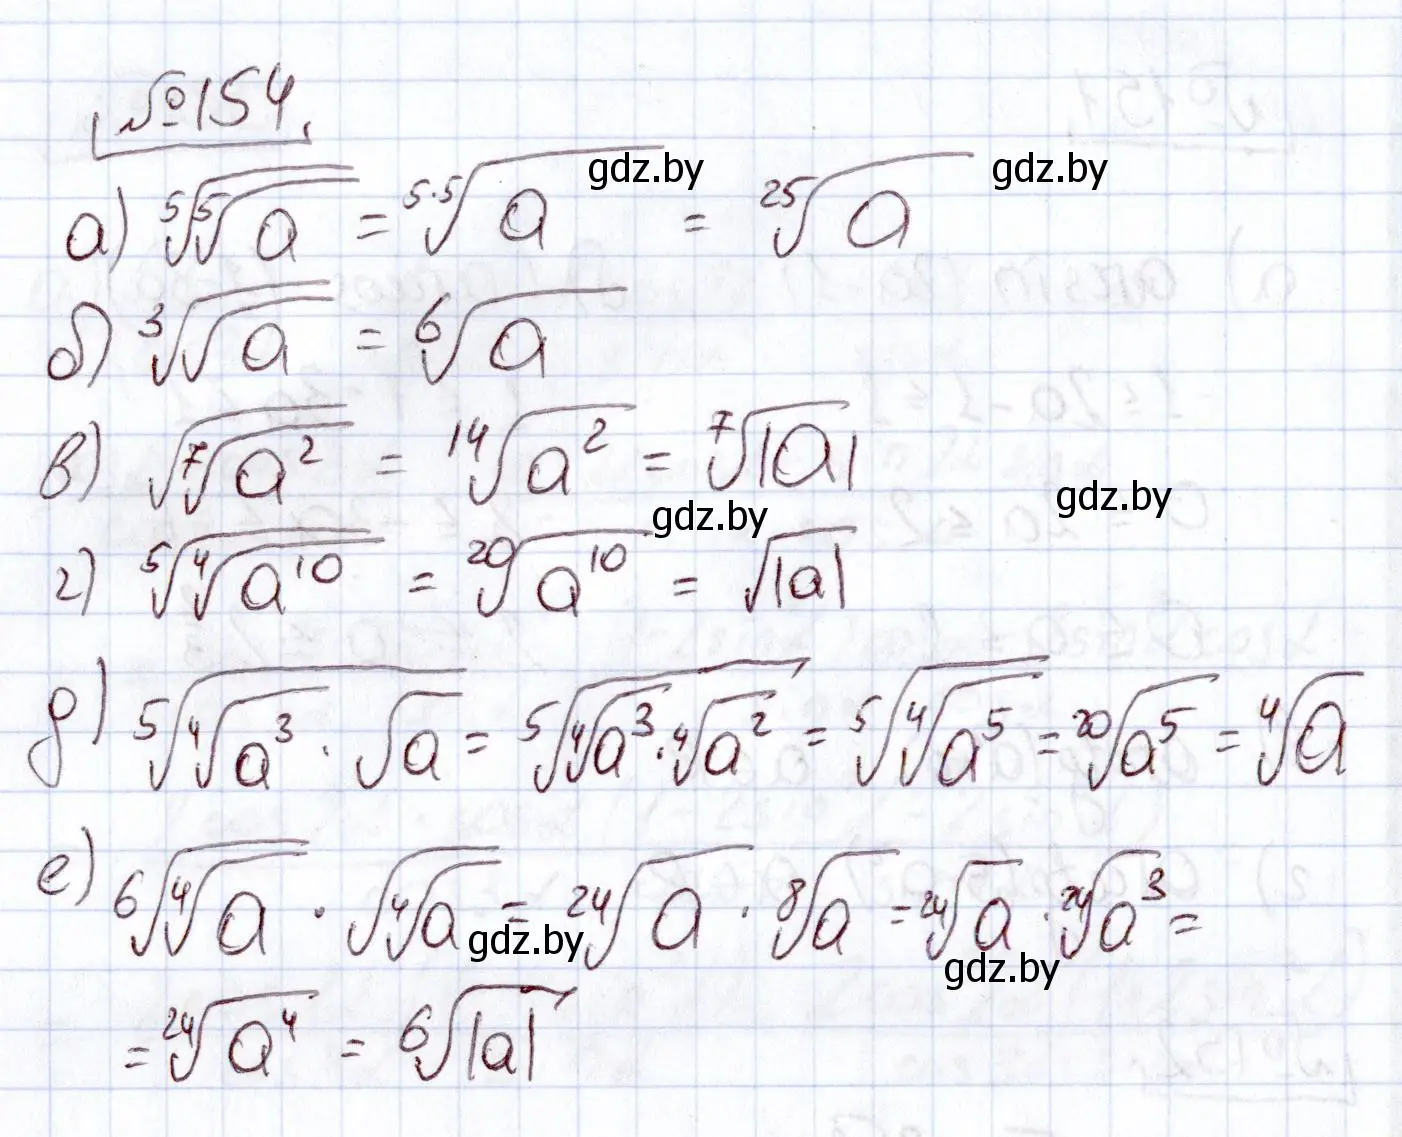 №154
а) ⁵√(⁵√a) = ⁵·⁵√a = ²⁵√a
б) ³√(√a) = ⁶√a
в) √(⁷√(a²)) = ¹⁴√(a²) = ⁷√|a|
г) ⁵√(⁴√(a¹⁰)) = ²⁰√(a¹⁰) = √|a|
д) ⁵√(⁴√(a³) · √a) = ⁵√(⁴√(a³) · ⁴√(a²)) = ⁵√(⁴√(a⁵)) = ²⁰√(a⁵) = ⁴√a
е) ⁶√(⁴√a) · √(⁴√a) = ²⁴√a · ⁸√a = ²⁴√a · ²⁴√(a³) =
= ²⁴√(a⁴) = ⁶√|a|
gdz.by
gdz.by
gdz.by
gdz.by
gdz.by
gdz.by